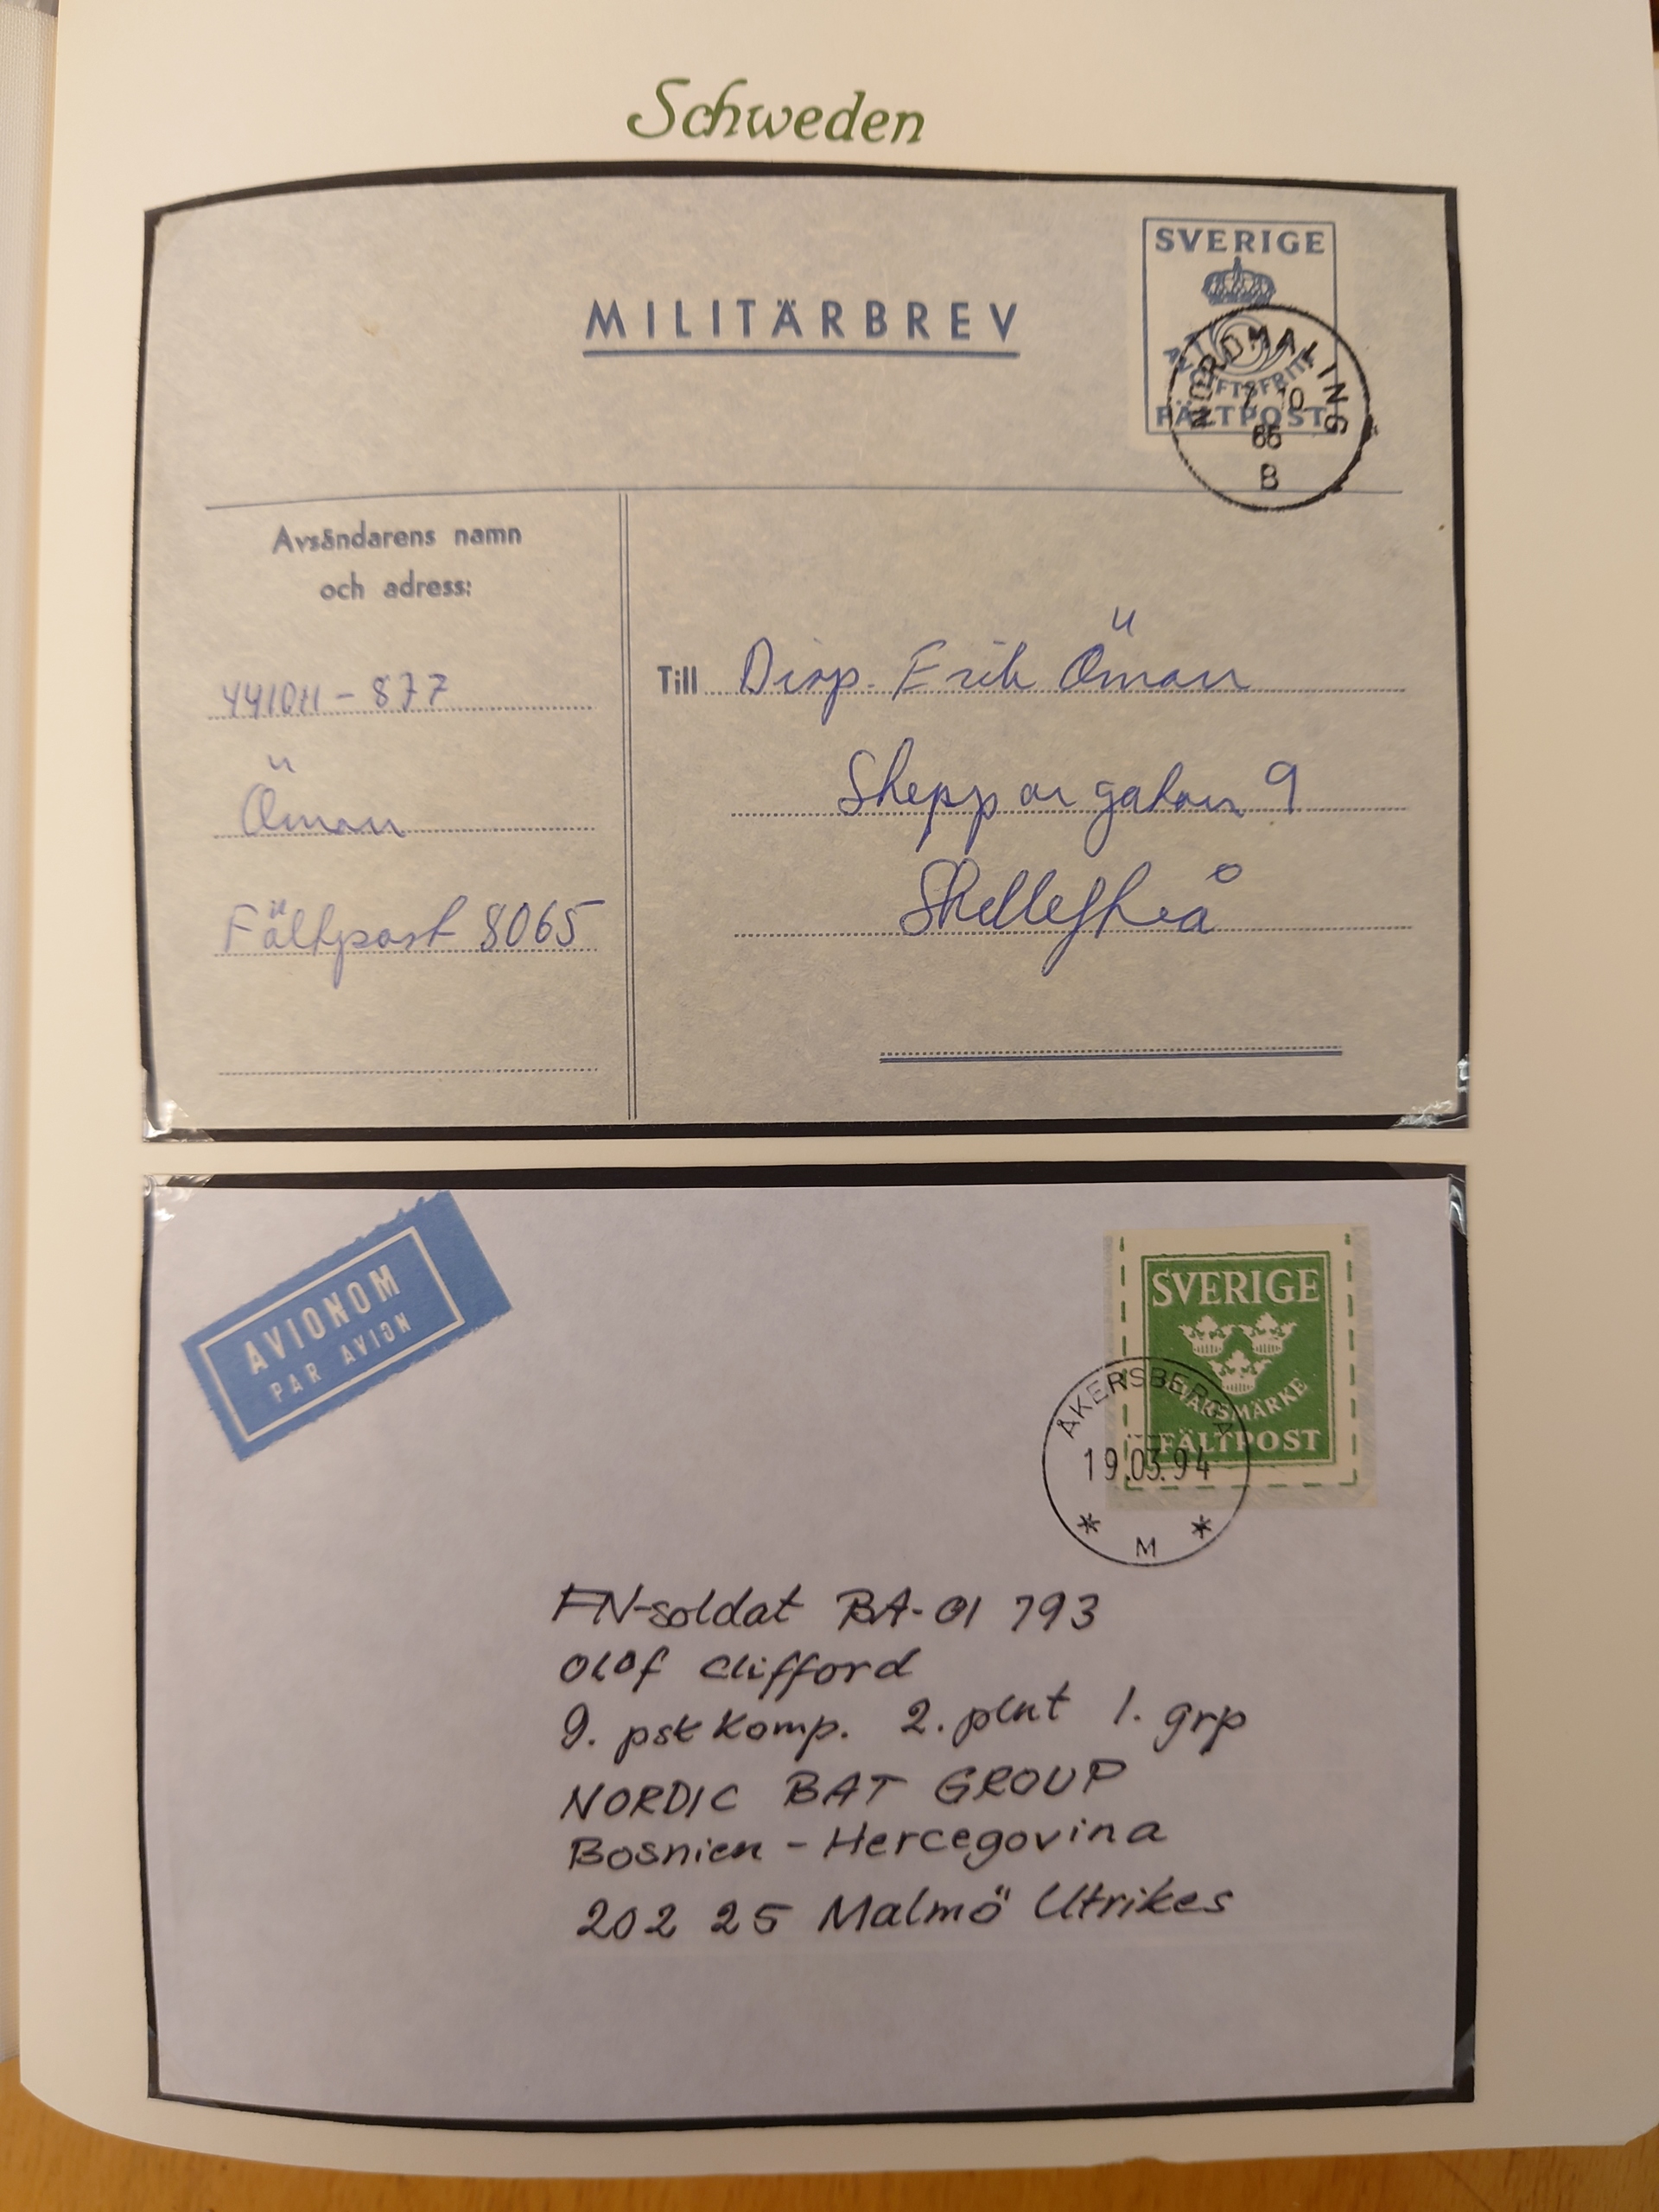 Schweden
MILITÄRBREV
SVERIGE
AVGIFTSFRITT
FÄLTPOST
NORDMALING
7 10
66
B
Avsändarens namn
och adress:
441011-877
Öman
Fältpost 8065
Till Disp. Erik Öman
Skeppargatan 9
Skellefteå
AVIONOM
PAR AVION
SVERIGE
SVARSMÄRKE
FÄLTPOST
ÅKERSBERGA
19.03.94
* M *
FN-soldat BA-01 793
Olof Clifford
9. pskkomp. 2. plut 1. grp
NORDIC BAT GROUP
Bosnien-Hercegovina
202 25 Malmö Utrikes